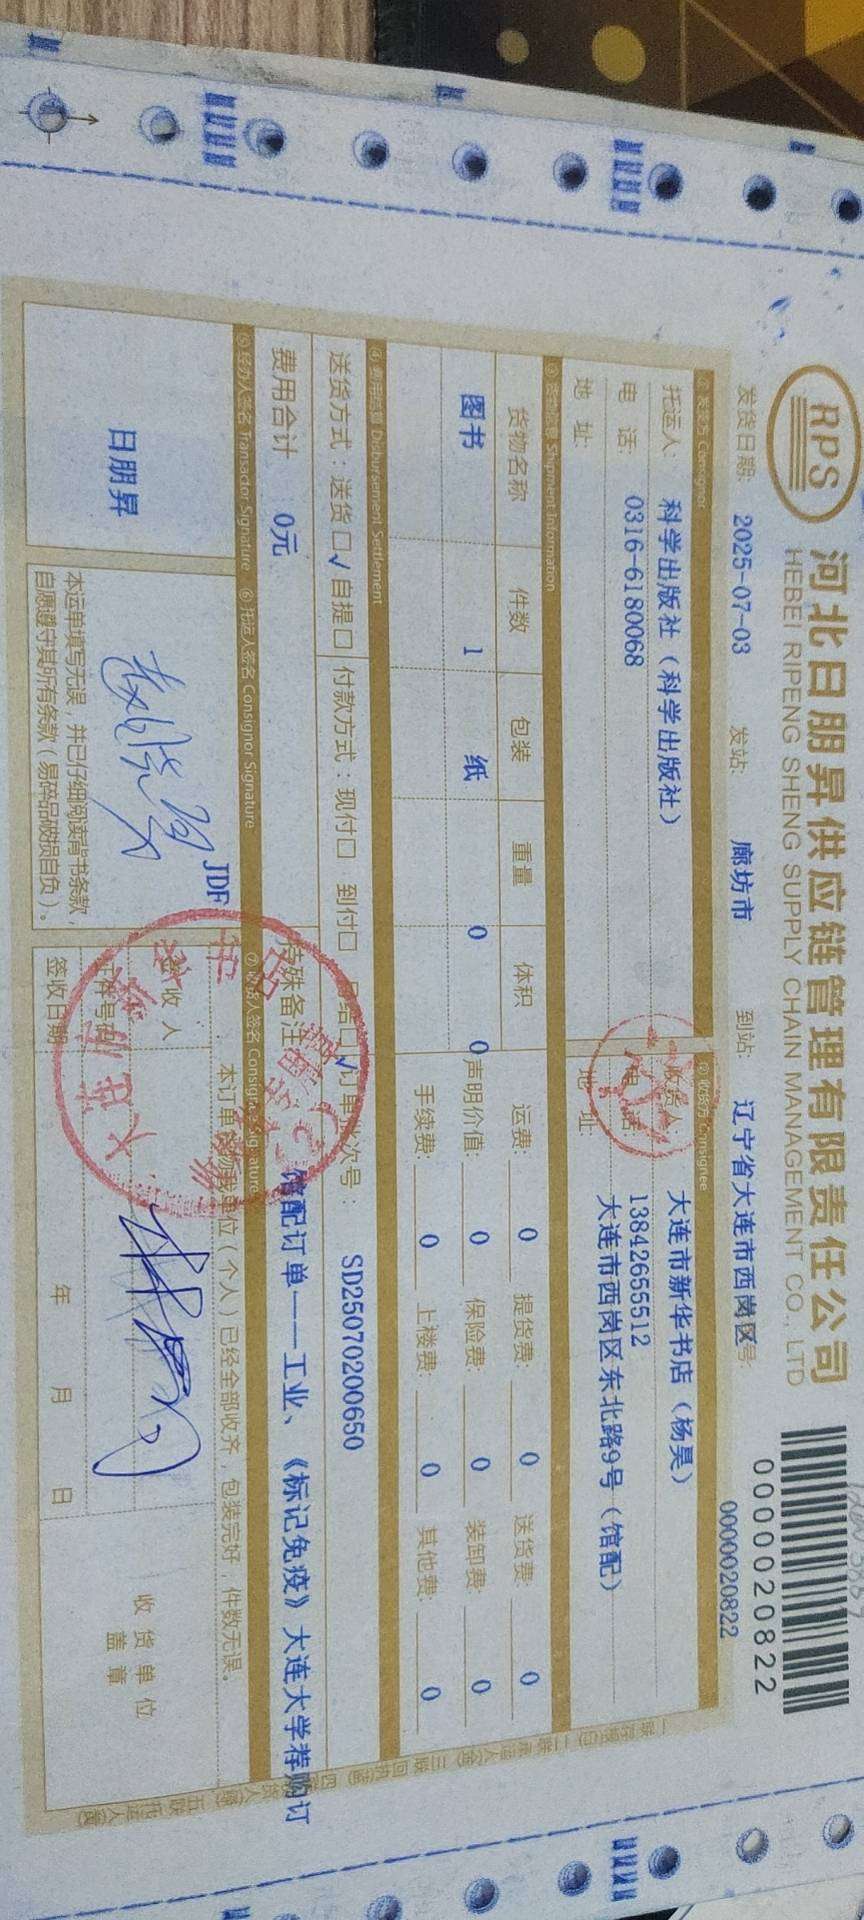 RPS
河北日朋昇供应链管理有限责任公司
HEBEI RIPENG SHENG SUPPLY CHAIN MANAGEMENT CO., LTD
0000020822
发货日期: 2025-07-03 发站: 廊坊市 到站: 辽宁省大连市西岗区 号: 0000020822
① 发货方 Consignor ② 收货方 Consignee
托运人: 科学出版社（科学出版社） 收货人: 大连市新华书店（杨昊）
电 话: 0316-6180068 电 话: 13842655512
地 址: 地 址: 大连市西岗区东北路9号（馆配）
③ 货物信息 Shipment Information
货物名称 件数 包装 重量 体积 运费: 0 提货费: 0 送货费: 0
图书 1 纸 0 0 声明价值: 0 保险费: 0 装卸费: 0
手续费: 0 上楼费: 0 其他费: 0
④ 费用结算 Disbursement Settlement
送货方式：送货□√ 自提□ 付款方式：现付□ 到付□ 月结□√ 订单批次号： SD25070200650
费用合计 0元 特殊备注 馆配订单——工业、《标记免疫》大连大学荐购订
⑤ 经办人签名 Transactor Signature ⑥ 托运人签名 Consignor Signature ⑦ 收货人签名 Consignee Signature
日朋昇
JDF
本运单填写无误，并已仔细阅读背书条款，
自愿遵守其所有条款（易碎品破损自负）。
本订单货物我单位（个人）已经全部收齐，包装完好，件数无误。
签收人
证件号码
签收日期 年 月 日
收货单位
盖章